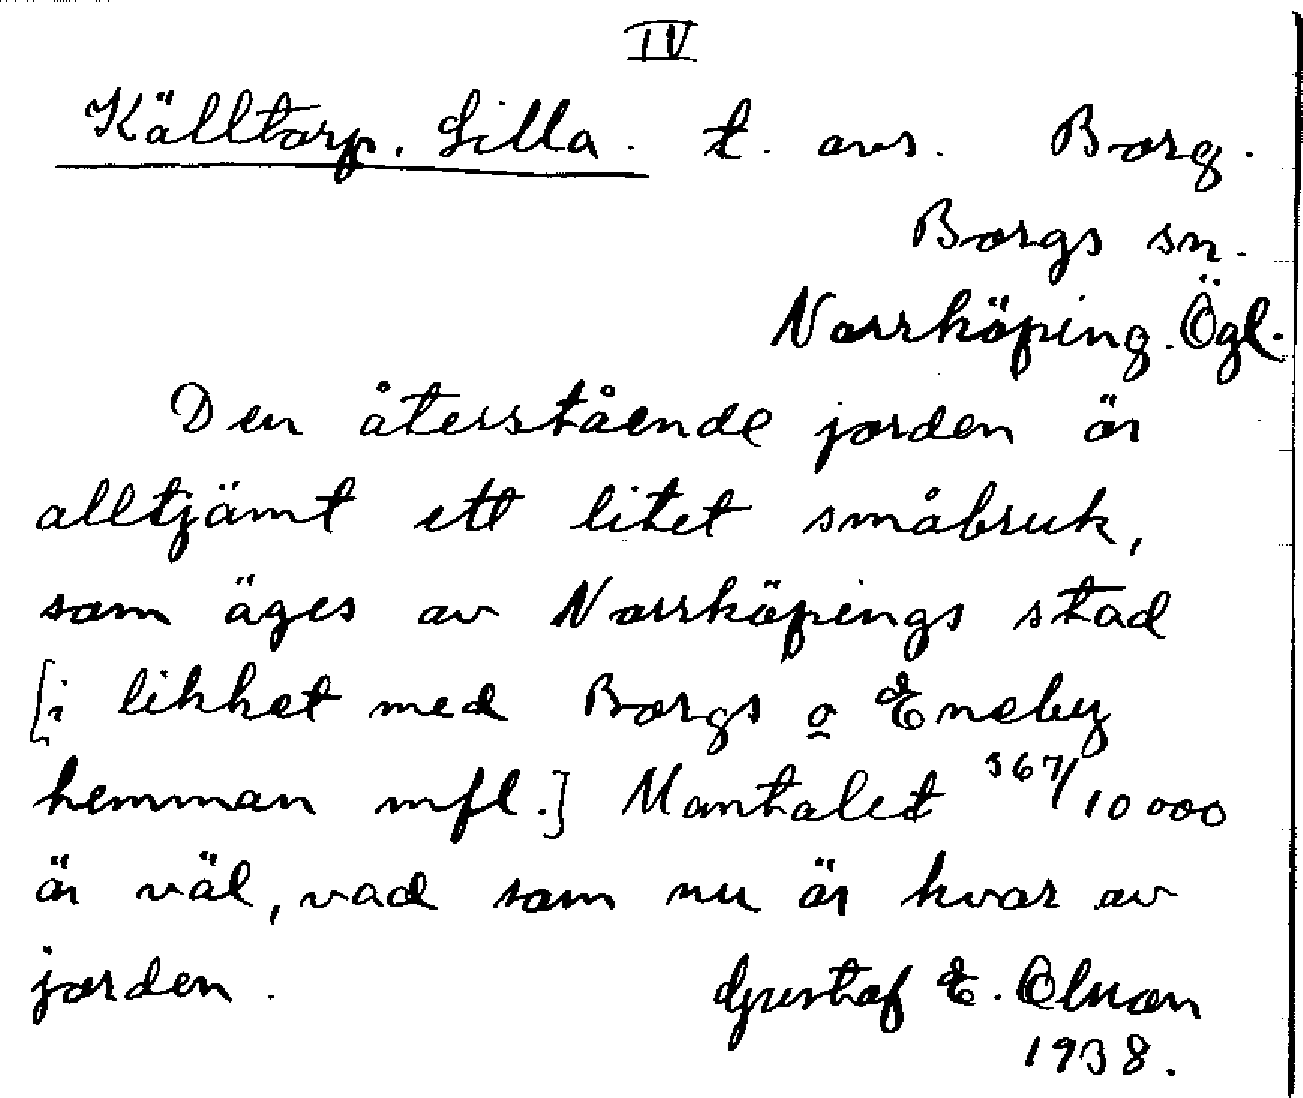 IV
Källtorp. Lilla. t. avs. Borg.
Borgs sn.
Norrköping. Ögl.
Den återstående jorden är
alltjämt ett litet småbruk,
som äges av Norrköpings stad
[i likhet med Borgs o Eneby
hemman mfl.] Mantalet 367/10000
är väl, vad som nu är kvar av
jorden.
Gustaf E. Olson
1938.